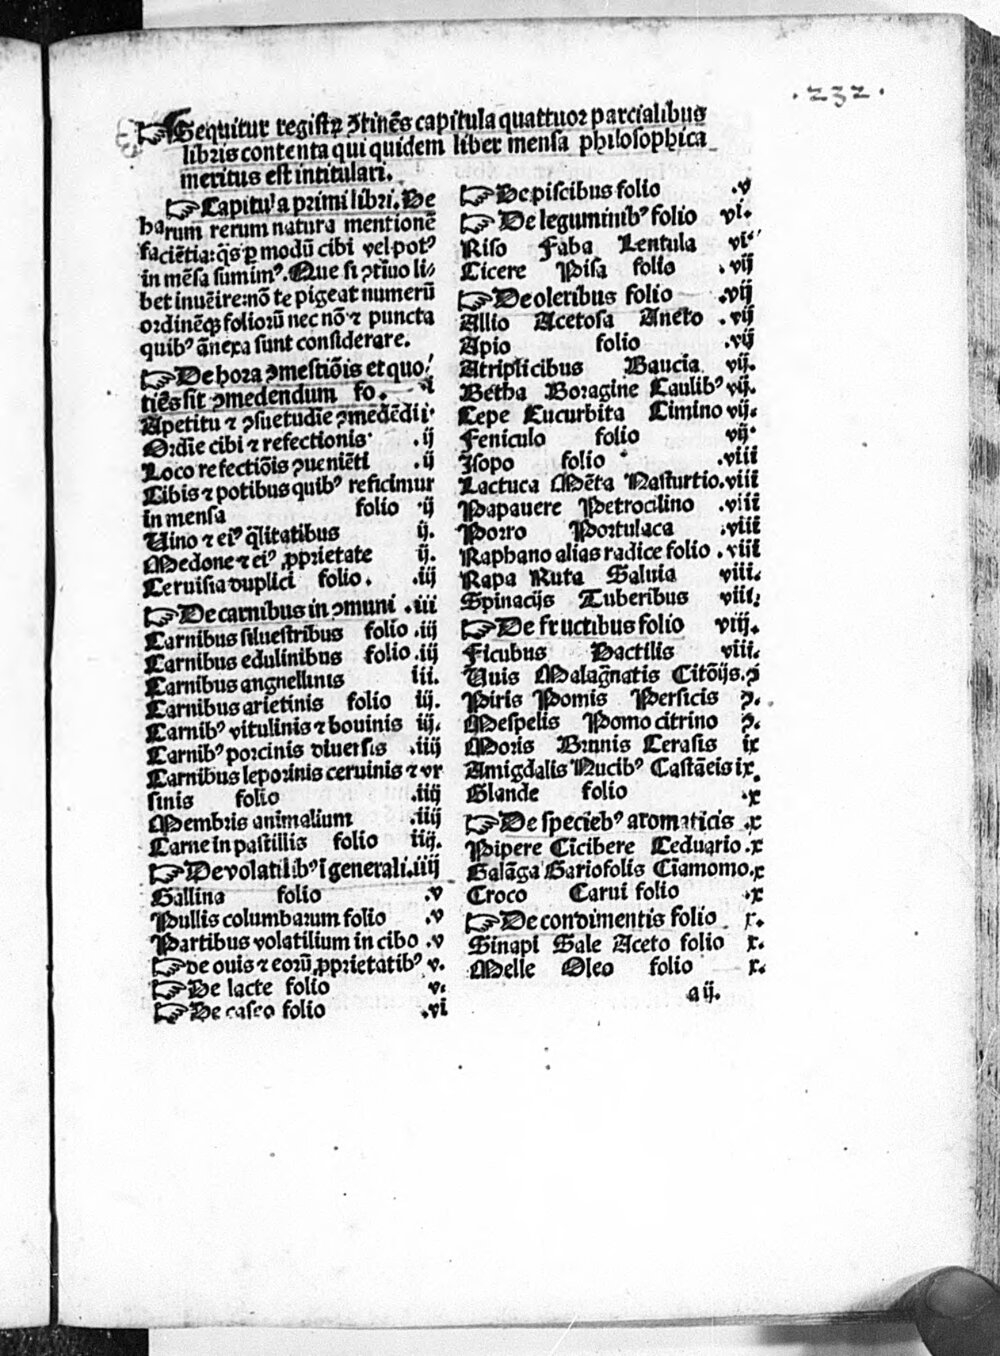 .232.
☞ Sequitur registꝝ ↄtinēs capitula quattuor parcialibus
libris contenta qui quidem liber mensa philosophica
meritus est intitulari.
☞ Capitul'a primi libri. De
harum rerum natura mentionē
faciētia: q̄s ꝑ modū cibi vel potꝰ
in mēsa sumimꝰ. Que si ↄtinuo li-
bet inuēire: nō te pigeat numerū
ordinēqꝫ folioruʒ nec nō ⁊ puncta
quibꝰ ānexa sunt considerare.
☞ De hora ↄmestiōis et quo/
tiēs sit ↄmedendum fo. .i
Apetitu ⁊ ↄsuetudie ↄmedēdi i.
Ordie cibi ⁊ refectionis .ij
Loco refectiōis ↄueniēti .ij
Cibis ⁊ potibus quibꝰ reficimur
in mensa folio .ij
Uino ⁊ eiꝰ q̄litatibus ij.
Medone ⁊ eiꝰ ꝓprietate ij.
Ceruisia duplici folio. .iij
☞ De carnibus in ↄmuni .iii
Carnibus siluestribus folio .iij
Carnibus edulinibus folio .iij
Carnibus angnellinis iii.
Carnibus arietinis folio iij.
Carnibꝰ vitulinis ⁊ bouinis iij.
Carnibꝰ porcinis diuersis .iiij
Carnibus leporinis ceruinis ⁊ vr
sinis folio .iiij
Membris animalium .iiij
Carne in pastillis folio iiij.
☞ De volatilibꝰ ī generali .iiij
Gallina folio .v
Pullis columbarum folio .v
Partibus volatilium in cibo .v
☞ de ouis ⁊ eorū ꝓprietatibꝰ v.
☞ De lacte folio v.
☞ De caseo folio .vi
☞ De piscibus folio .v
☞ De leguminibꝰ folio vi.
Riso Faba Lentula vi
Cicere Pisa folio .vij
☞ De oleribus folio .vij
Allio Acetosa Aneto .vij
Apio folio .vij
Atriplicibus Baucia vij.
Betha Boragine Caulibꝰ vij.
Cepe Cucurbita Cimino vij.
Feniculo folio vij
Isopo folio .viii
Lactuca Mēta Nasturtio .viii
Papauere Petrocilino .viii
Porro Portulaca .viii
Raphano alias radice folio .viii
Rapa Ruta Saluia viii.
Spinacijs Tuberibus viii.
☞ De fructibus folio viij.
Ficubus Dactilis viii.
Uuis Malagͣnatis Citōijs. ꝯ
Piris Pomis Persicis ꝯ.
Mespelis Pomo citrino ꝯ.
Moris Brunis Cerasis ix
Amigdalis Nucibꝰ Castāeis ix.
Glande folio .x
☞ De speciebꝰ aromaticis .x
Pipere Cicibere Ceduario .x
Galāga Gariofolis Ciamomo .x
Croco Carui folio .x
☞ De condimentis folio x.
Sinapi Sale Aceto folio x.
Melle Oleo folio x.
a ij.